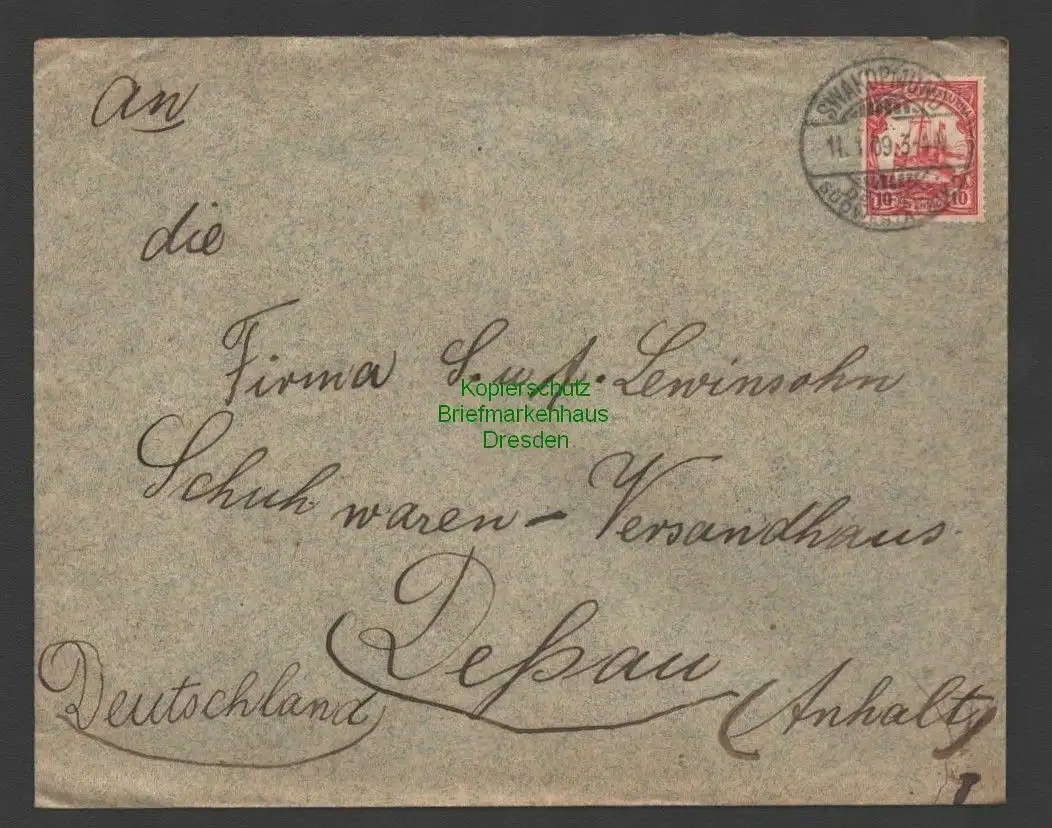 An
die
Firma S. u. f. Lewinsohn
Schuhwaren - Versandhaus
Deßau
(Anhalt)
Deutschland
SWAKOPMUND
11. 09. 3-4
10 10
Kopierschutz
Briefmarkenhaus
Dresden